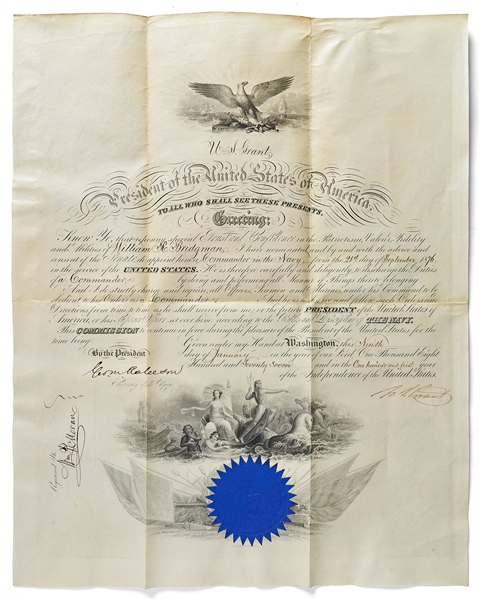 U. S. Grant,
President of the United States of America.
TO ALL WHO SHALL SEE THESE PRESENTS,
Greeting:
Know Ye, that reposing special Trust and Confidence in the Patriotism, Valor, Fidelity
and Abilities of William R. Bridgman, I have nominated, and by and with the advice and
consent of the Senate, do appoint him a Commander in the Navy, from the 21st day of September 1876,
in the service of the UNITED STATES. He is therefore carefully and diligently to discharge the Duties
of a Commander by doing and performing all Manner of Things thereto belonging.
And I do strictly charge and require all Officers, Seamen and Marines under his Command to be
obedient to his Orders as a Commander. And he is to observe and follow such Orders and
Directions from time to time as he shall receive from me, or the future PRESIDENT of the United States of
America, or his THE NAVY.
This COMMISSION to continue in force during the pleasure of the President of the United States for the
time being.
Given under my Hand at Washington, this
day of January in the year of our Lord One Thousand Eight
By the President
Hundred and Seventy Seven and in the One hundred and first year
of the Independence of the United States.
U. S. Grant
Registered